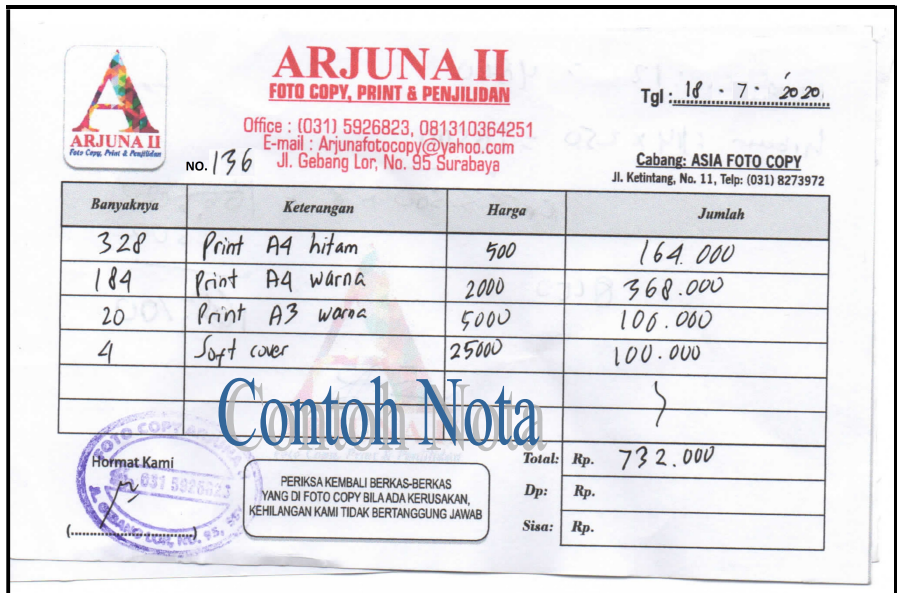 ARJUNA II
FOTO COPY, PRINT & PENJILIDAN
Tgl : 18 - 7 - 2020
ARJUNA II
Foto Copy, Print & Penjilidan
Office : (031) 5926823, 081310364251
E-mail : Arjunafotocopy@yahoo.com
Jl. Gebang Lor, No. 95 Surabaya
NO. 136
Cabang: ASIA FOTO COPY
Jl. Ketintang, No. 11, Telp: (031) 8273972
Banyaknya Keterangan Harga Jumlah
328 Print A4 hitam 500 164.000
184 Print A4 warna 2000 368.000
20 Print A3 warna 5000 100.000
4 Soft cover 25000 100.000
Contoh Nota
Foto Copy, Print & Penjilidan
Hormat Kami
FOTO COPY ARJUNA
031 5926823
JL. GEBANG LOR, NO. 95,
PERIKSA KEMBALI BERKAS-BERKAS
YANG DI FOTO COPY BILA ADA KERUSAKAN,
KEHILANGAN KAMI TIDAK BERTANGGUNG JAWAB
Total: Rp. 732.000
Dp: Rp.
Sisa: Rp.